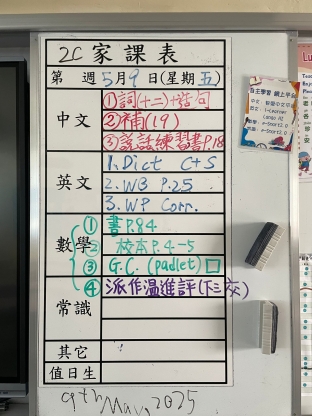 2C 家課表
第 週 5月9日(星期五)
中文
①詞(十二)+造句
②補(19)
③説話練習書P.18
英文
1. Dict C+S
2. WB P.25
3. WP Corr.
數學
① 書P.84
② 校本P.4-5
③ G.C. (padlet) □
④ 派作温進評(下三交)
常識
其它
值日生
9th May, 2025
自主學習 網上平台